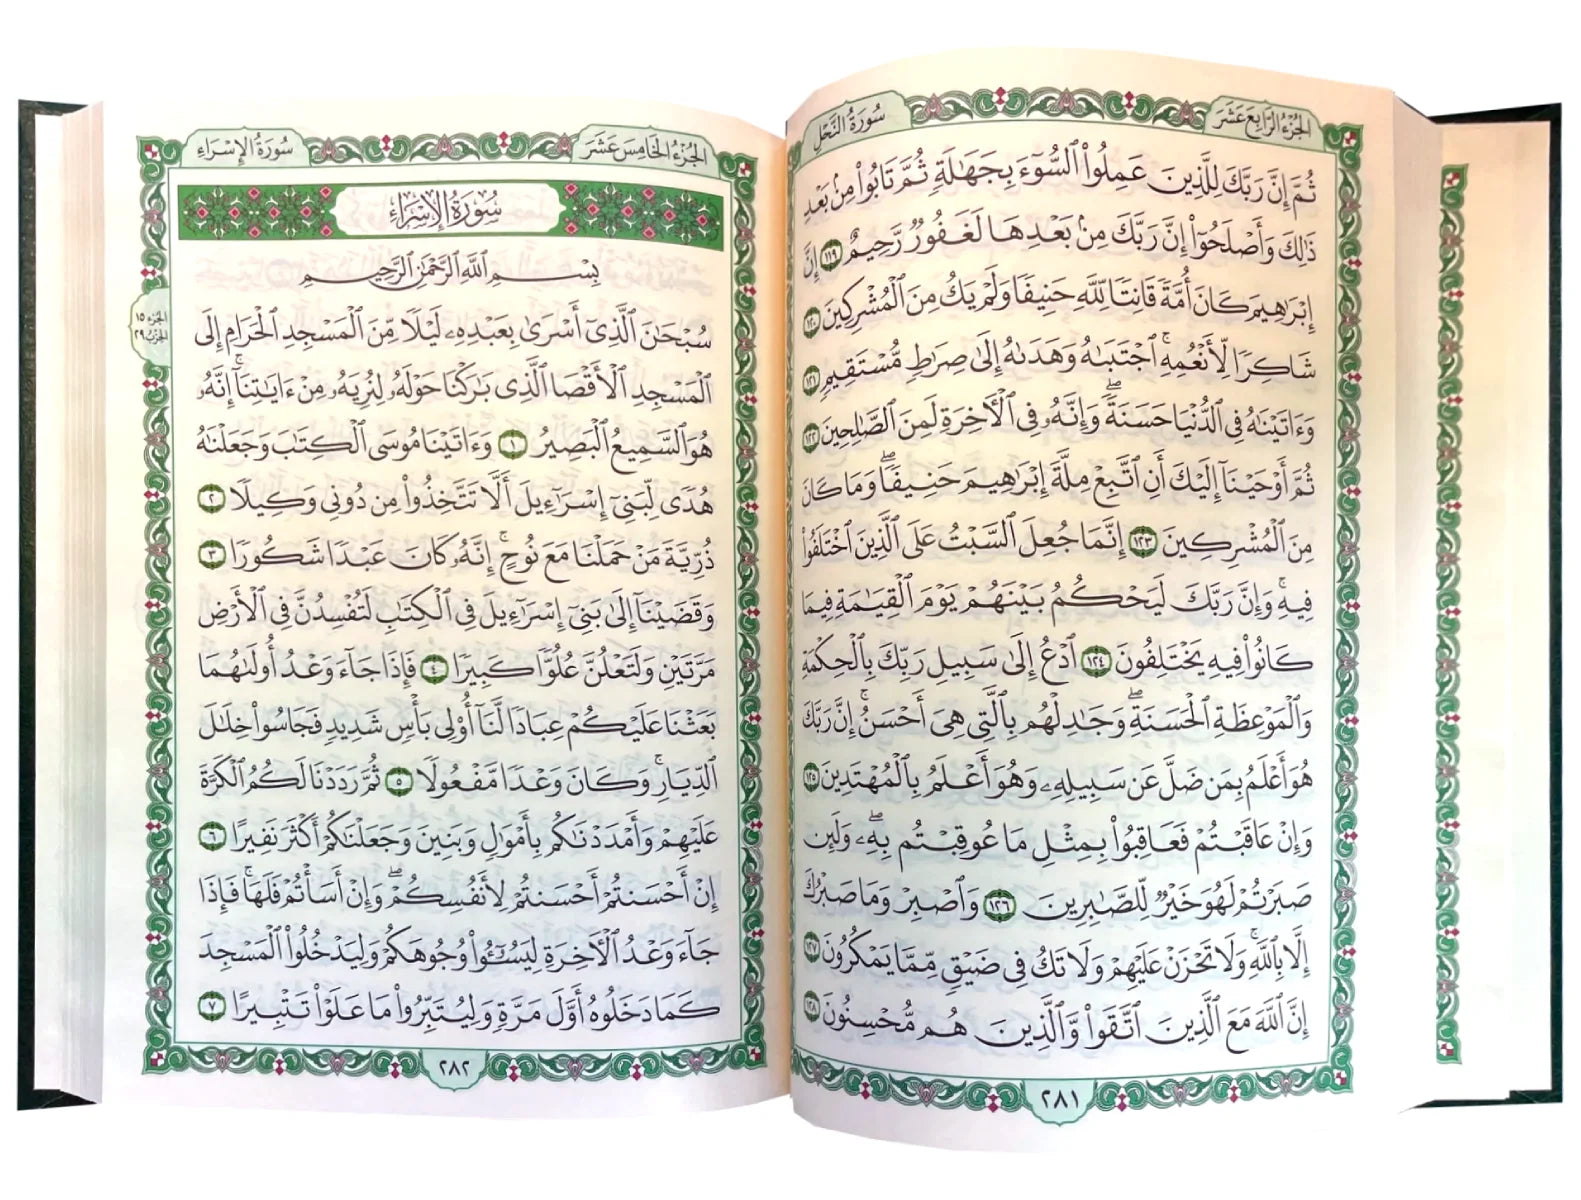 الجزء الرابع عشر
سورة النحل
ثُمَّ إِنَّ رَبَّكَ لِلَّذِينَ عَمِلُوا۟ ٱلسُّوٓءَ بِجَهَـٰلَةٍ ثُمَّ تَابُوا۟ مِنۢ بَعْدِ
ذَٰلِكَ وَأَصْلَحُوٓا۟ إِنَّ رَبَّكَ مِنۢ بَعْدِهَا لَغَفُورٌ رَّحِيمٌ ١١٩ إِنَّ
إِبْرَٰهِيمَ كَانَ أُمَّةً قَانِتًا لِّلَّهِ حَنِيفًا وَلَمْ يَكُ مِنَ ٱلْمُشْرِكِينَ ١٢٠
شَاكِرًا لِّأَنْعُمِهِ ۚ ٱجْتَبَىٰهُ وَهَدَىٰهُ إِلَىٰ صِرَٰطٍ مُّسْتَقِيمٍ ١٢١
وَءَاتَيْنَـٰهُ فِى ٱلدُّنْيَا حَسَنَةً ۖ وَإِنَّهُۥ فِى ٱلْـَٔاخِرَةِ لَمِنَ ٱلصَّـٰلِحِينَ ١٢٢
ثُمَّ أَوْحَيْنَآ إِلَيْكَ أَنِ ٱتَّبِعْ مِلَّةَ إِبْرَٰهِيمَ حَنِيفًا ۖ وَمَا كَانَ
مِنَ ٱلْمُشْرِكِينَ ١٢٣ إِنَّمَا جُعِلَ ٱلسَّبْتُ عَلَى ٱلَّذِينَ ٱخْتَلَفُوا۟
فِيهِ ۚ وَإِنَّ رَبَّكَ لَيَحْكُمُ بَيْنَهُمْ يَوْمَ ٱلْقِيَـٰمَةِ فِيمَا
كَانُوا۟ فِيهِ يَخْتَلِفُونَ ١٢٤ ٱدْعُ إِلَىٰ سَبِيلِ رَبِّكَ بِٱلْحِكْمَةِ
وَٱلْمَوْعِظَةِ ٱلْحَسَنَةِ ۖ وَجَـٰدِلْهُم بِٱلَّتِى هِىَ أَحْسَنُ ۚ إِنَّ رَبَّكَ
هُوَ أَعْلَمُ بِمَن ضَلَّ عَن سَبِيلِهِۦ وَهُوَ أَعْلَمُ بِٱلْمُهْتَدِينَ ١٢٥
وَإِنْ عَاقَبْتُمْ فَعَاقِبُوا۟ بِمِثْلِ مَا عُوقِبْتُم بِهِۦ ۖ وَلَئِن
صَبَرْتُمْ لَهُوَ خَيْرٌ لِّلصَّـٰبِرِينَ ١٢٦ وَٱصْبِرْ وَمَا صَبْرُكَ
إِلَّا بِٱللَّهِ ۚ وَلَا تَحْزَنْ عَلَيْهِمْ وَلَا تَكُ فِى ضَيْقٍ مِّمَّا يَمْكُرُونَ ١٢٧
إِنَّ ٱللَّهَ مَعَ ٱلَّذِينَ ٱتَّقَوا۟ وَّٱلَّذِينَ هُم مُّحْسِنُونَ ١٢٨
٢٨١
الجزء الخامس عشر
سورة الإسراء
سورة الإسراء
بِسْمِ ٱللَّهِ ٱلرَّحْمَـٰنِ ٱلرَّحِيمِ
الجزء ١٥
الحزب ٢٩
سُبْحَـٰنَ ٱلَّذِىٓ أَسْرَىٰ بِعَبْدِهِۦ لَيْلًا مِّنَ ٱلْمَسْجِدِ ٱلْحَرَامِ إِلَى
ٱلْمَسْجِدِ ٱلْأَقْصَا ٱلَّذِى بَـٰرَكْنَا حَوْلَهُۥ لِنُرِيَهُۥ مِنْ ءَايَـٰتِنَآ ۚ إِنَّهُۥ
هُوَ ٱلسَّمِيعُ ٱلْبَصِيرُ ١ وَءَاتَيْنَا مُوسَى ٱلْكِتَـٰبَ وَجَعَلْنَـٰهُ
هُدًى لِّبَنِىٓ إِسْرَٰٓءِيلَ أَلَّا تَتَّخِذُوا۟ مِن دُونِى وَكِيلًا ٢
ذُرِّيَّةَ مَنْ حَمَلْنَا مَعَ نُوحٍ ۚ إِنَّهُۥ كَانَ عَبْدًا شَكُورًا ٣
وَقَضَيْنَآ إِلَىٰ بَنِىٓ إِسْرَٰٓءِيلَ فِى ٱلْكِتَـٰبِ لَتُفْسِدُنَّ فِى ٱلْأَرْضِ
مَرَّتَيْنِ وَلَتَعْلُنَّ عُلُوًّا كَبِيرًا ٤ فَإِذَا جَآءَ وَعْدُ أُولَىٰهُمَا
بَعَثْنَا عَلَيْكُمْ عِبَادًا لَّنَآ أُو۟لِى بَأْسٍ شَدِيدٍ فَجَاسُوا۟ خِلَـٰلَ
ٱلدِّيَارِ ۚ وَكَانَ وَعْدًا مَّفْعُولًا ٥ ثُمَّ رَدَدْنَا لَكُمُ ٱلْكَرَّةَ
عَلَيْهِمْ وَأَمْدَدْنَـٰكُم بِأَمْوَٰلٍ وَبَنِينَ وَجَعَلْنَـٰكُمْ أَكْثَرَ نَفِيرًا ٦
إِنْ أَحْسَنتُمْ أَحْسَنتُمْ لِأَنفُسِكُمْ ۖ وَإِنْ أَسَأْتُمْ فَلَهَا ۚ فَإِذَا
جَآءَ وَعْدُ ٱلْـَٔاخِرَةِ لِيَسُـۥٓـُٔوا۟ وُجُوهَكُمْ وَلِيَدْخُلُوا۟ ٱلْمَسْجِدَ
كَمَا دَخَلُوهُ أَوَّلَ مَرَّةٍ وَلِيُتَبِّرُوا۟ مَا عَلَوْا۟ تَتْبِيرًا ٧
٢٨٢